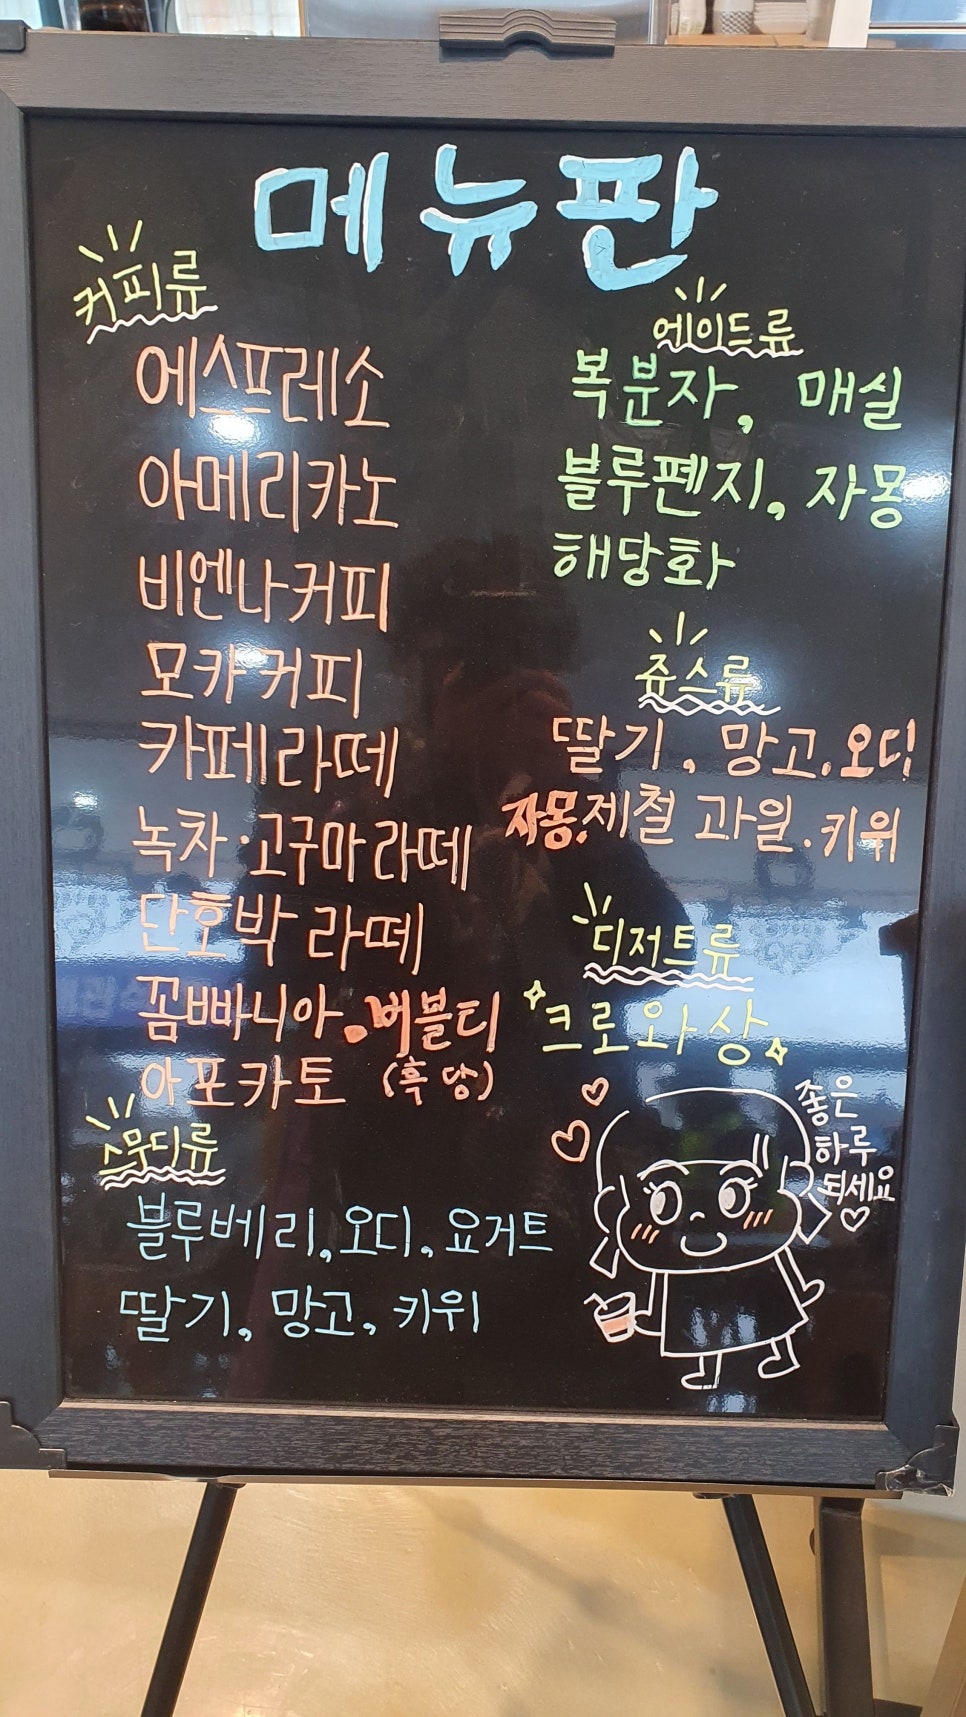 메뉴판
커피류
에스프레소
아메리카노
비엔나커피
모카커피
카페라떼
녹차·고구마라떼
단호박 라떼
꼼빠니아.버블티
아포카토 (흑당)
스무디류
블루베리,오디,요거트
딸기, 망고, 키위
에이드류
복분자, 매실
블루펜지, 자몽
해당화
쥬스류
딸기, 망고.오디
자몽.제철 과일.키위
디저트류
크로와상
좋은
하루
되세요